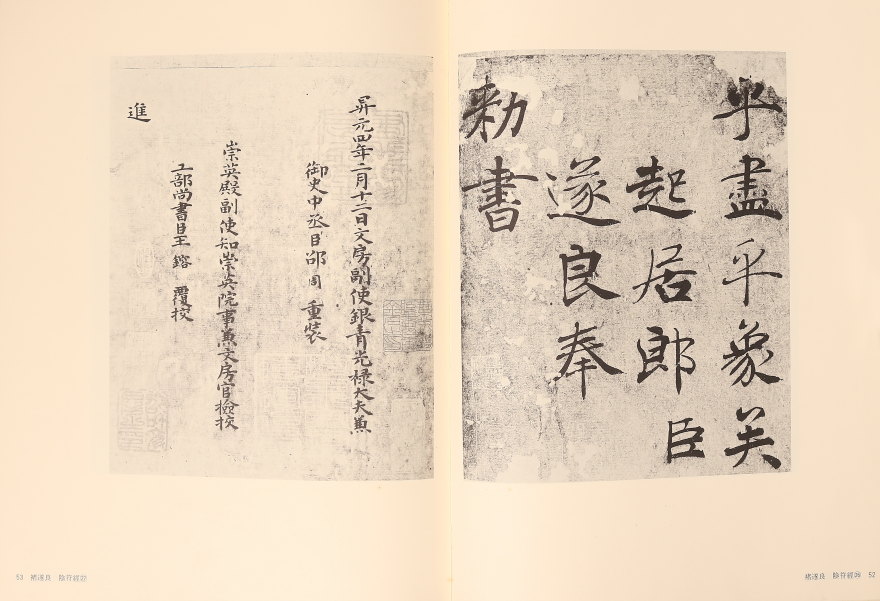 乎盡乎象矣
起居郎臣
遂良奉
勑書
褚遂良 陰符經 52
昇元四年二月十二日文房副使銀青光祿大夫兼
御史中丞臣邵周重裝
崇英殿副使知崇英院事兼文房官檢校
工部尚書臣王鎔覆校
進
53 褚遂良 陰符經